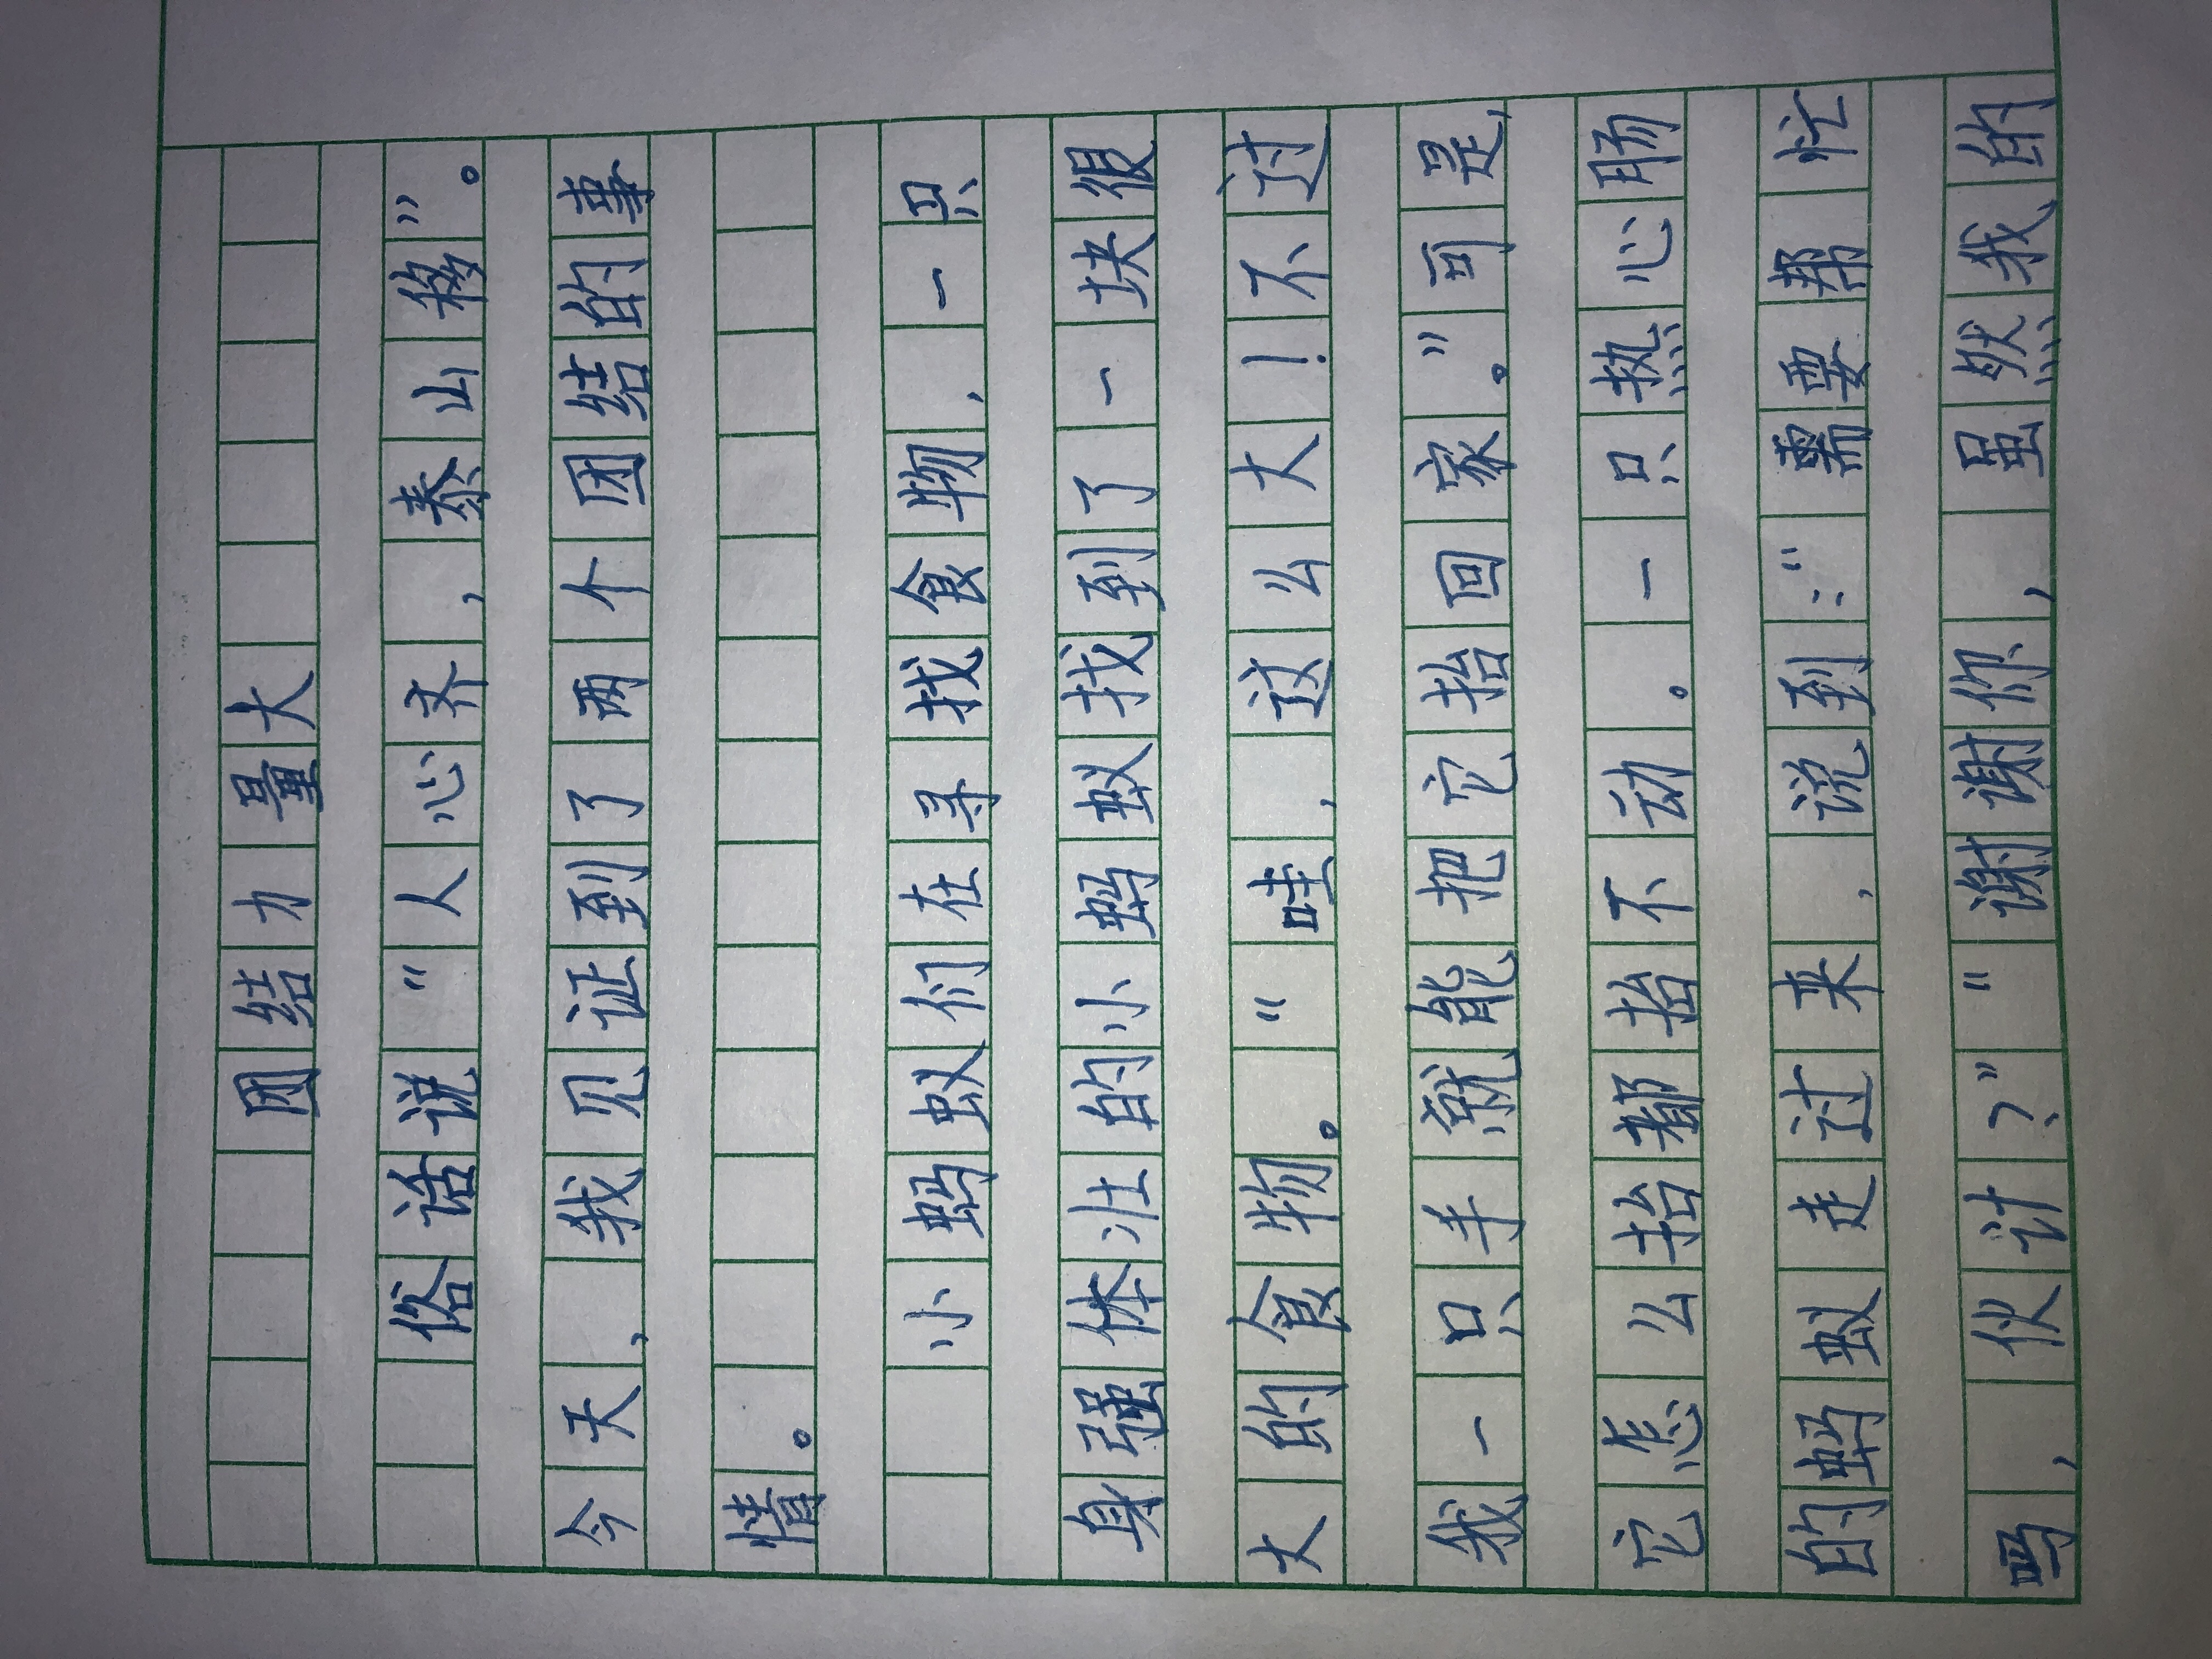 团结力量大
俗话说“人心齐，泰山移”。
今天，我见证到了两个团结的事
情。
小蚂蚁们在寻找食物，一只
身强体壮的小蚂蚁找到了一块很
大的食物。“哇，这么大！不过
我一只手就能把它抬回家。”可是，
它怎么抬都抬不动。一只热心肠
的蚂蚁走过来，说到：“需要帮忙
吗，伙计？”“谢谢你，虽然我的